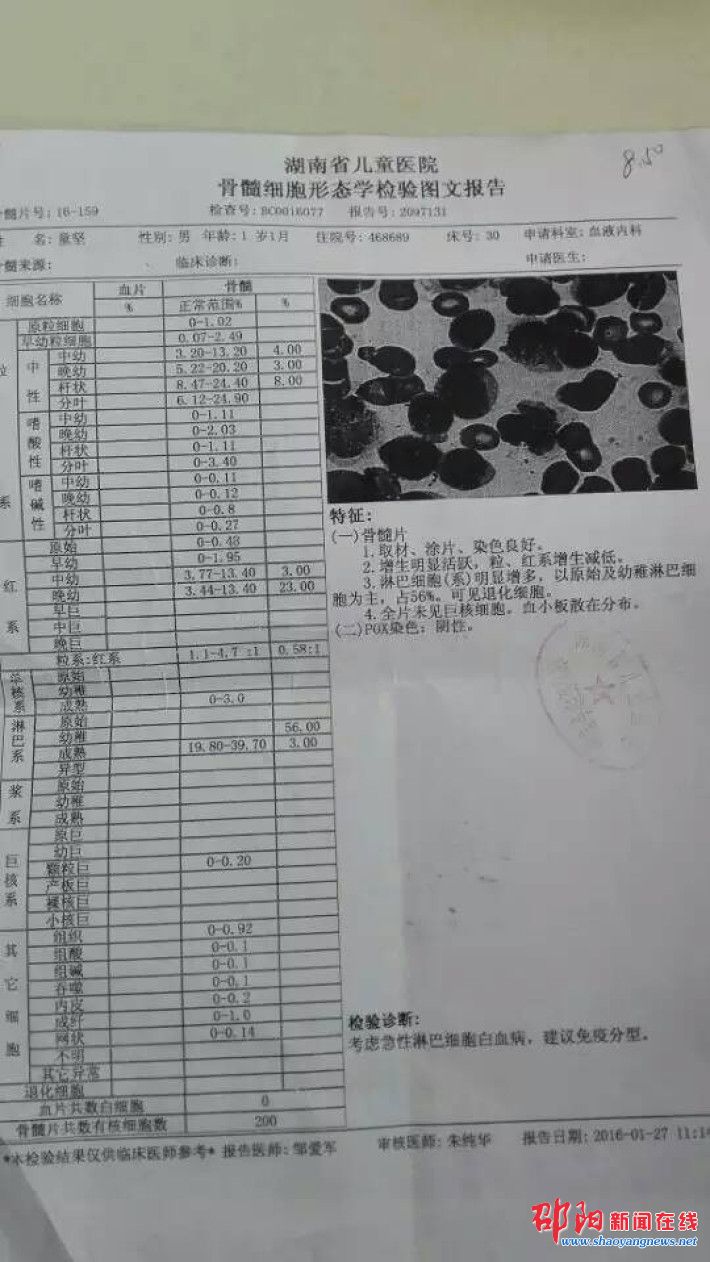 湖南省儿童医院
8.50
骨髓细胞形态学检验图文报告
髓片号: 16-159 检查号: BC0016077 报告号: 2097131
名: 童坚 性别: 男 年龄: 1 岁1月 住院号: 468689 床号: 30 申请科室: 血液内科
髓来源: 临床诊断: 申请医生:
细胞名称 血片 骨髓
% 正常范围% %
粒系
原粒细胞 0-1.02
早幼粒细胞 0.07-2.49
中性 中幼 3.20-13.20 4.00
晚幼 5.22-20.20 3.00
杆状 8.47-24.40 8.00
分叶 6.12-24.90
嗜酸性 中幼 0-1.11
晚幼 0-2.03
杆状 0-1.11
分叶 0-3.40
嗜碱性 中幼 0-0.11
晚幼 0-0.12
杆状 0-0.8
分叶 0-0.27
红系 原始 0-0.48
早幼 0-1.95
中幼 3.77-13.40 3.00
晚幼 3.44-13.40 23.00
早巨
中巨
晚巨
粒系:红系 1.1-4.7 :1 0.58:1
核系 原始
幼稚
成熟 0-3.0
淋巴系 原始
幼稚 56.00
成熟 19.80-39.70 3.00
异型
浆系 原始
幼稚
成熟
巨核系 原巨
幼巨
颗粒巨 0-0.20
产板巨
裸核巨
小核巨
其它细胞 组织 0-0.92
组酸 0-0.1
组碱 0-0.1
吞噬 0-0.1
内皮 0-0.2
成纤 0-1.0
网状 0-0.14
不明
其它异常
退化细胞
血片共数白细胞 0
骨髓片共数有核细胞数 200
特征:
(一)骨髓片
1.取材、涂片、染色良好。
2.增生明显活跃，粒、红系增生减低。
3.淋巴细胞(系)明显增多，以原始及幼稚淋巴细
胞为主，占56%。可见退化细胞。
4.全片未见巨核细胞。血小板散在分布。
(二)POX染色: 阴性。
检验诊断:
考虑急性淋巴细胞白血病，建议免疫分型。
*本检验结果仅供临床医师参考* 报告医师: 邹爱军 审核医师: 朱纯华 报告日期: 2016-01-27 11:1
邵阳新闻在线
www.shaoyangnews.net